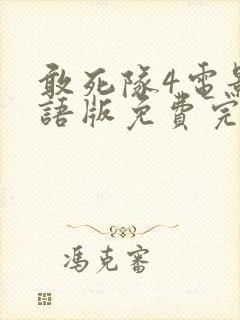 敢死隊4電影
語版免費完
馮克審